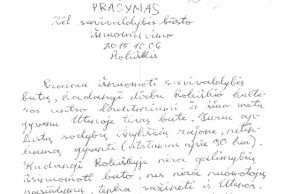 PRAŠYMAS
Dėl savivaldybės būsto
išnuomavimo
2015 10 06
Rokiškis
Prašau išnuomoti savivaldybės
butą, kadangi dirbu Rokiškio kultū-
ros centro direktoriumi ir šiuo metu
gyvenu Utenoje tėvų bute. Turiu ap-
sodybą Anykščių rajone, netin-
kamą gyventi (atstumas apie 90 km).
Kadangi Rokiškyje nėra galimybių
išsinuomoti buto, nes nėra nuomotojų
pasiūlymų, tenka važinėti iš Utenos